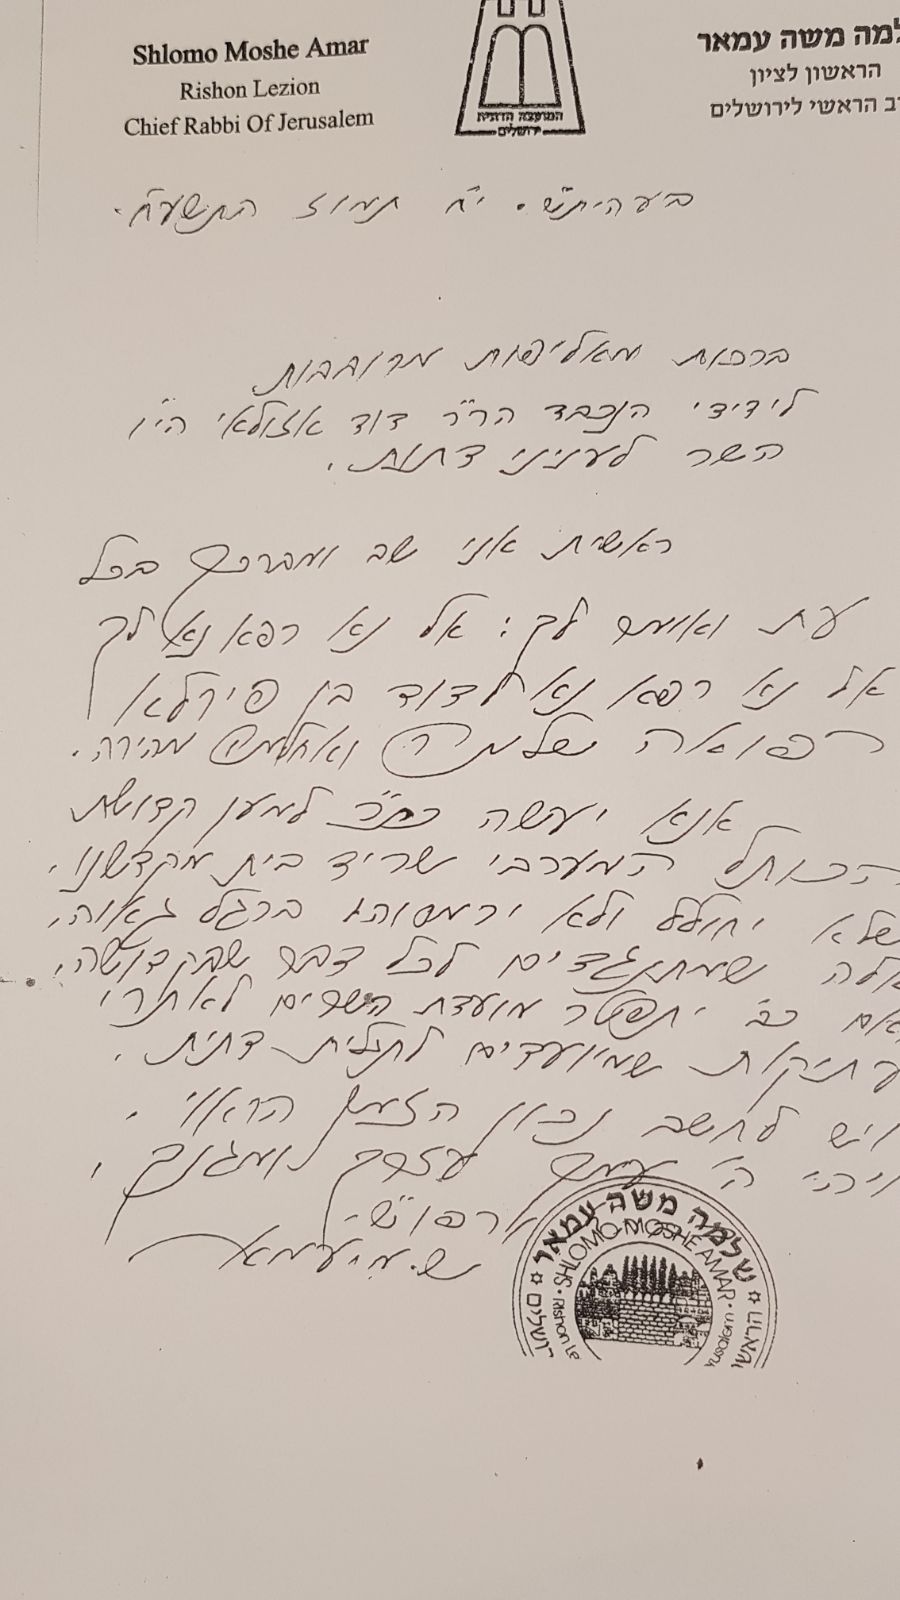 Shlomo Moshe Amar
Rishon Lezion
Chief Rabbi Of Jerusalem
המועצה הדתית
ירושלים
למה משה עמאר
הראשון לציון
רב הראשי לירושלים
בעהית"ש. י"ח תמוז התשע"ח.
ברכות מאליפות מרובבות
לידידי הנכבד הר"ר דוד אזולאי הי"ו
השר לעניני דתות.
ראשית אני שב ומברכך בכל
עת ואומר לך: אל נא רפא נא לך
אל נא רפא נא לדוד בן פירלא
רפואה שלמה ואחלמה מהירה.
אנא יעשה כת"ר למען קדושת
הכותל המערבי שריד בית מקדשנו.
שלא יחולל ולא ירמסוהו ברגל גאוה,
אלה שמתנגדים לכל דבר שבקדושה,
אם כב' יתפטר מועדת השרים לאתרי
עתיקות שמיועדים לתפלית דתית.
ויש לחשב נכון הזמן הראוי.
ויהי ה' עמך עזרך ומגנך,
ש. מ. עמאר
שלמה משה עמאר
SHLOMO MOSHE AMAR